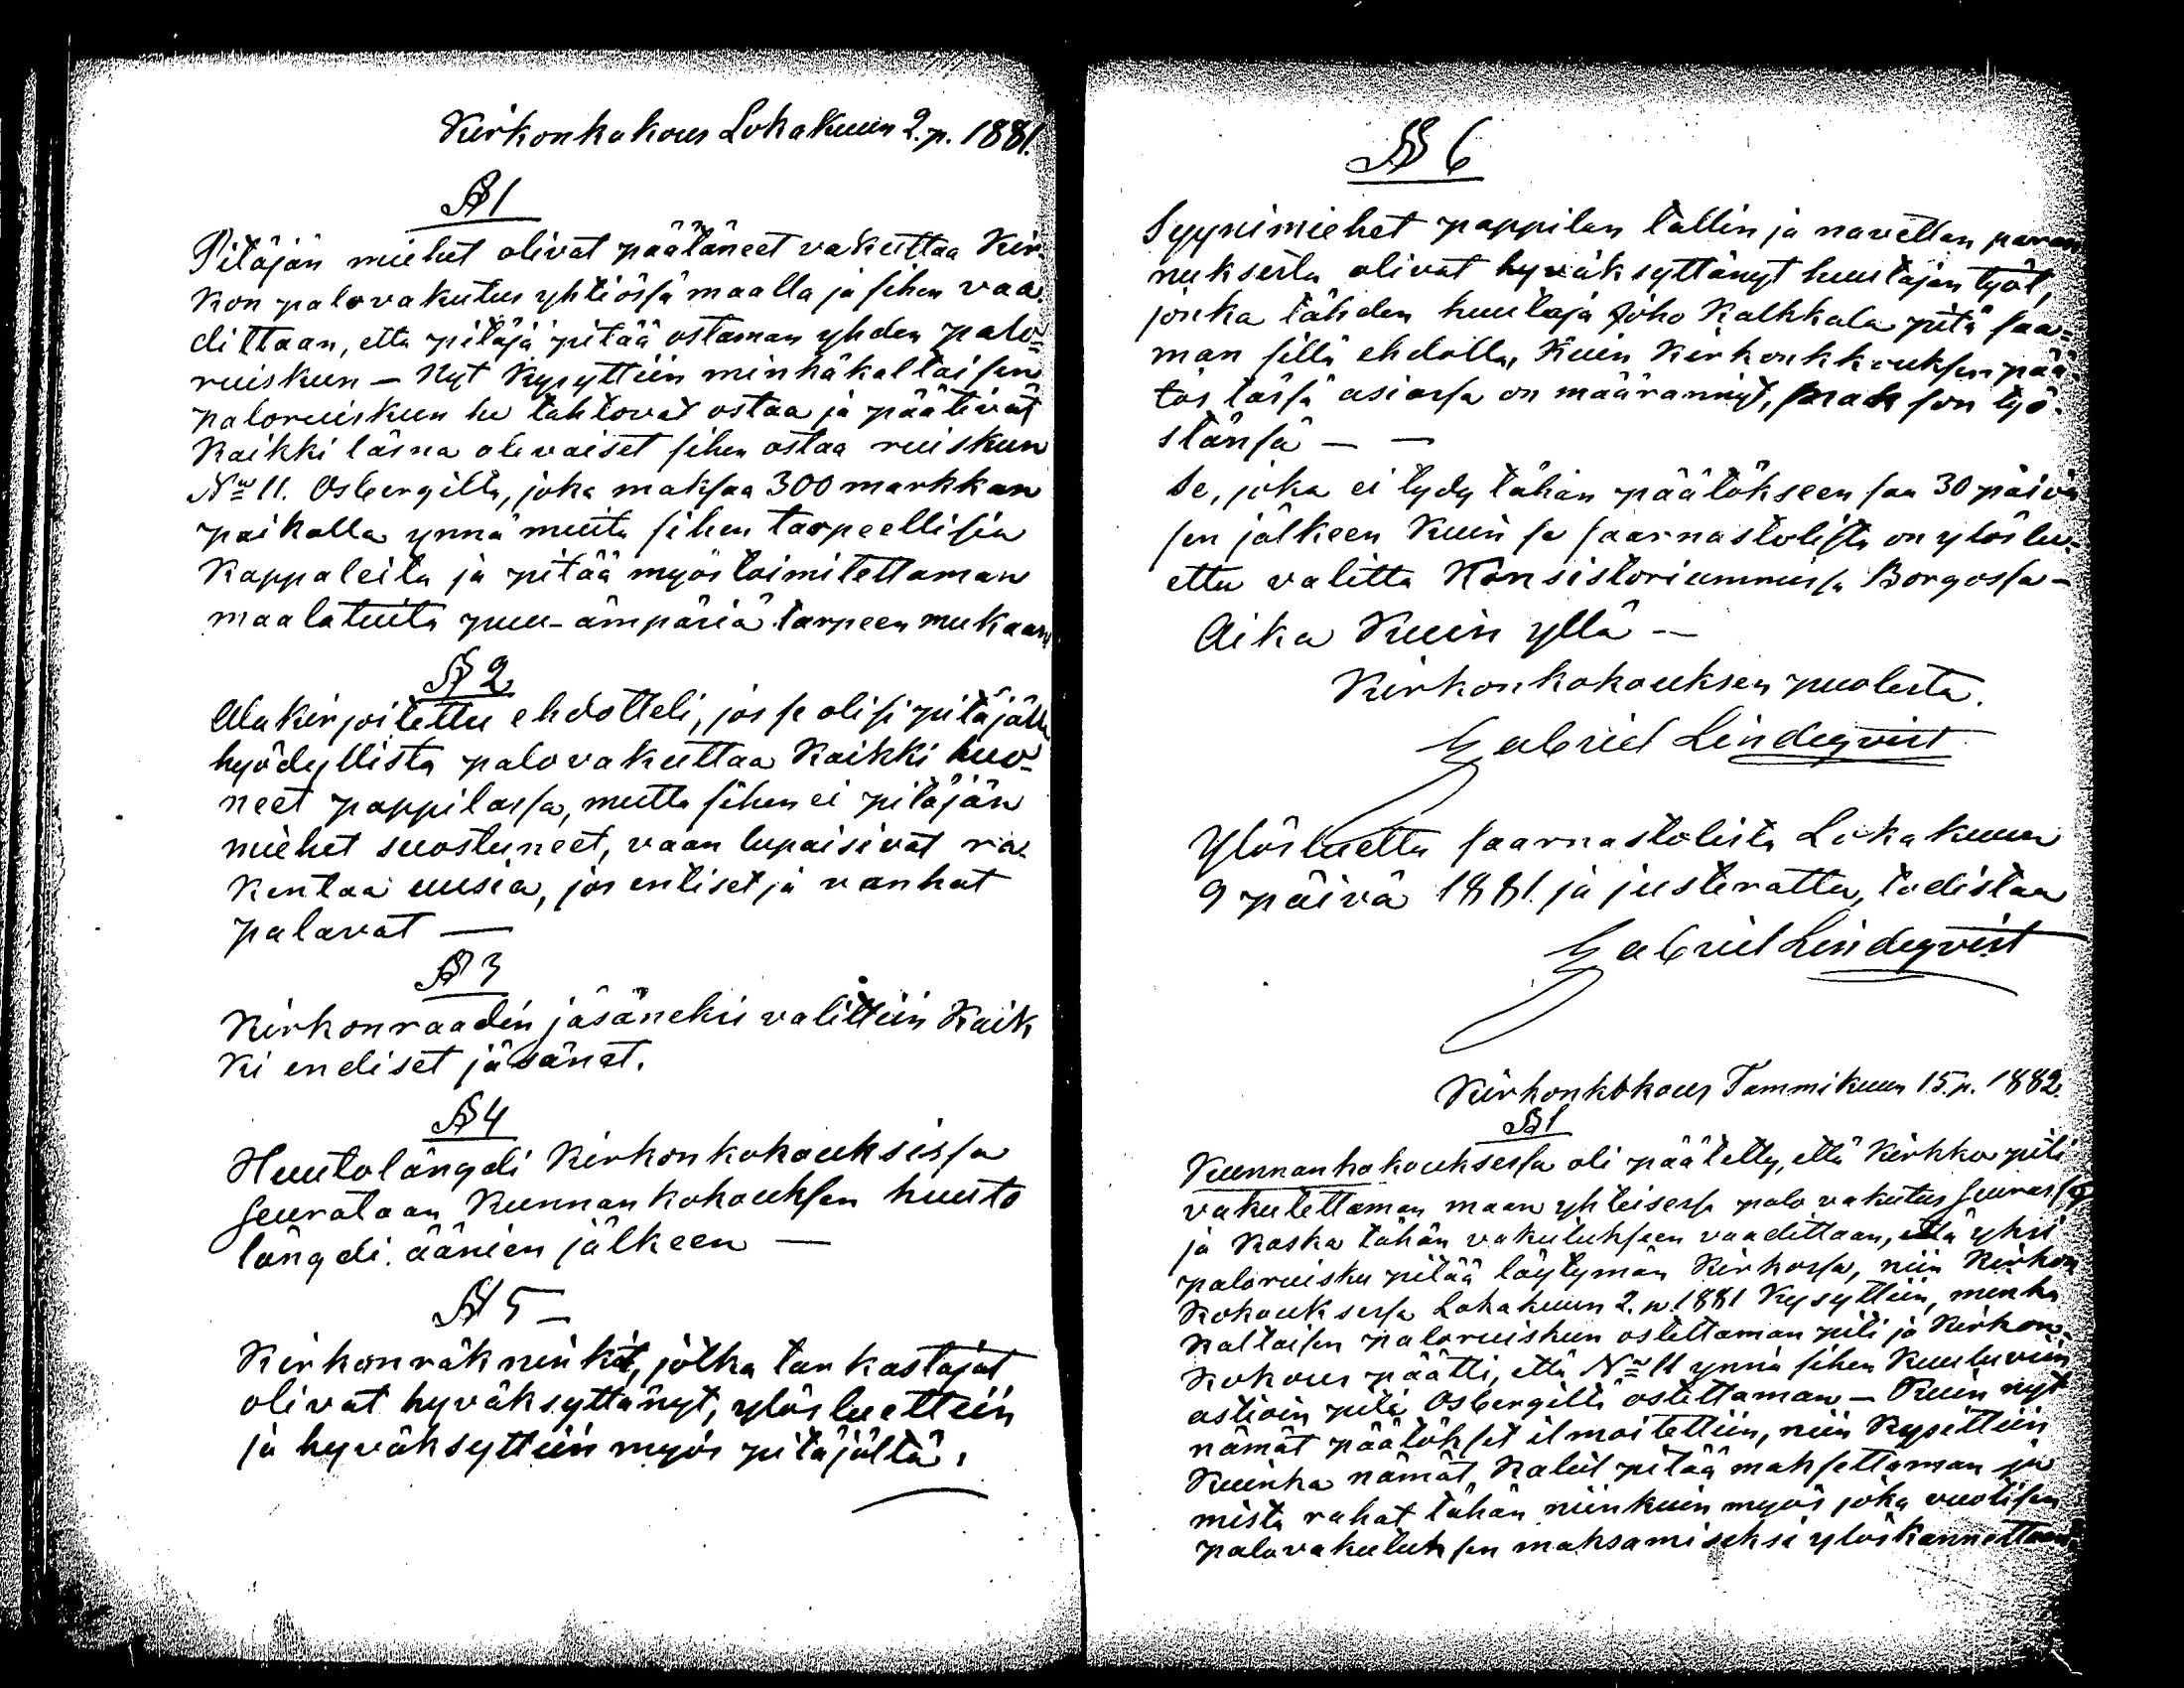 Kirkonkokous Lokakuun 2.p. 1881.
§ 1
Pitäjän miehet olivat päätäneet vakuttaa Kir-
kon palovakutus yhtiössä maalla ja sihen vaa
dittaan, etta pitäjä pitää ostaman yhden palo-
ruiskun — Nyt Kysyttiin minkäkaltaisen
paloruiskun he tahtovat ostaa ja päätivät
Kaikki läsna olevaiset sihen ostaa ruiskun
No 11. Osbergilta, joka maksaa 300 markkan
paikalla ynnä muita sihen tarpeellisia
Kappaleita ja pitää myös toimitettaman
maalatuita puu-ämpäriä tarpeen mukaan
§ 2
Alakirjoitettu ehdotteli, jos se olisi pitäjälle
hyödyllistä palovakuttaa Kaikki huo-
neet pappilassa, mutta sihen ei pitäjän
miehet suostuneet, vaan lupaisivat ra-
kentaa uusia, jos entiset ja vanhat
palavat —
§ 3
Kirkonraadin jäsäneksi valittiin Kaik
ki endiset jäsänet.
§ 4
Huutolängdi Kirkonkokouksissa
seurataan Kunnankokouksen huuto
längdi äänien jälkeen —
§ 5 —
Kirkonräkninkit, jotka tarkastajat
olivat hyväksyttänyt, ylösluettiin
ja hyväksyttiin myös pitäjältä.
§ 6
Syynimiehet pappilan tallin ja navettan paran
nuksesta olivat hyväksyttänyt huutajan työt,
jonka tähden huutaja Joho Kalkkala pitä saa-
man sillä ehdolla, Kuin Kirkonkkouksen pää-
tös tässä asiassa on määrännyt, makson työ-
stänsä — —
Se, joka ei tydy tähän päätökseen saa 30 päivä
sen jälkeen Kuin se saarnastolista on ylöslu-
ettu valitta Konsistoriummissa Borgossa —
Aika Kuin yllä —
Kirkonkokouksen puolesta.
Gabriel Lindeqvist
Ylösluettu saarnastolista Lokakuun
9 päivä 1881. ja justerattu, todistaa
Gabriel Lindeqvist
Kirkonkokous Tammikuun 15.p. 1882.
§ 1
Kunnankokouksessa oli päätetty, että Kirkko piti
vakutettaman maan yhteisessa palo vakutus seurassa
ja Koska tähän vakutukseen vaadittaan, että yksi
paloruisku pitää löytymän Kirkossa, niin Kirkon
Kokouksessa Lokakuun 2.p. 1881 Kysyttiin, minka
Kaltaisen paloruiskun ostettaman piti ja Kirkon-
Kokous päätti, että No 11 ynnä sihen Kuuluvien
astioin piti Osbergilti ostettaman — Kuin nyt
nämät päätökset ilmoitettiin, niin Kysittiin
Kuinka nämät Kalut pitää maksettaman ja
mistä rahat tähän niinkuin myös joka vuotisen
palovakutuksen maksamiseksi ylöskannettaan